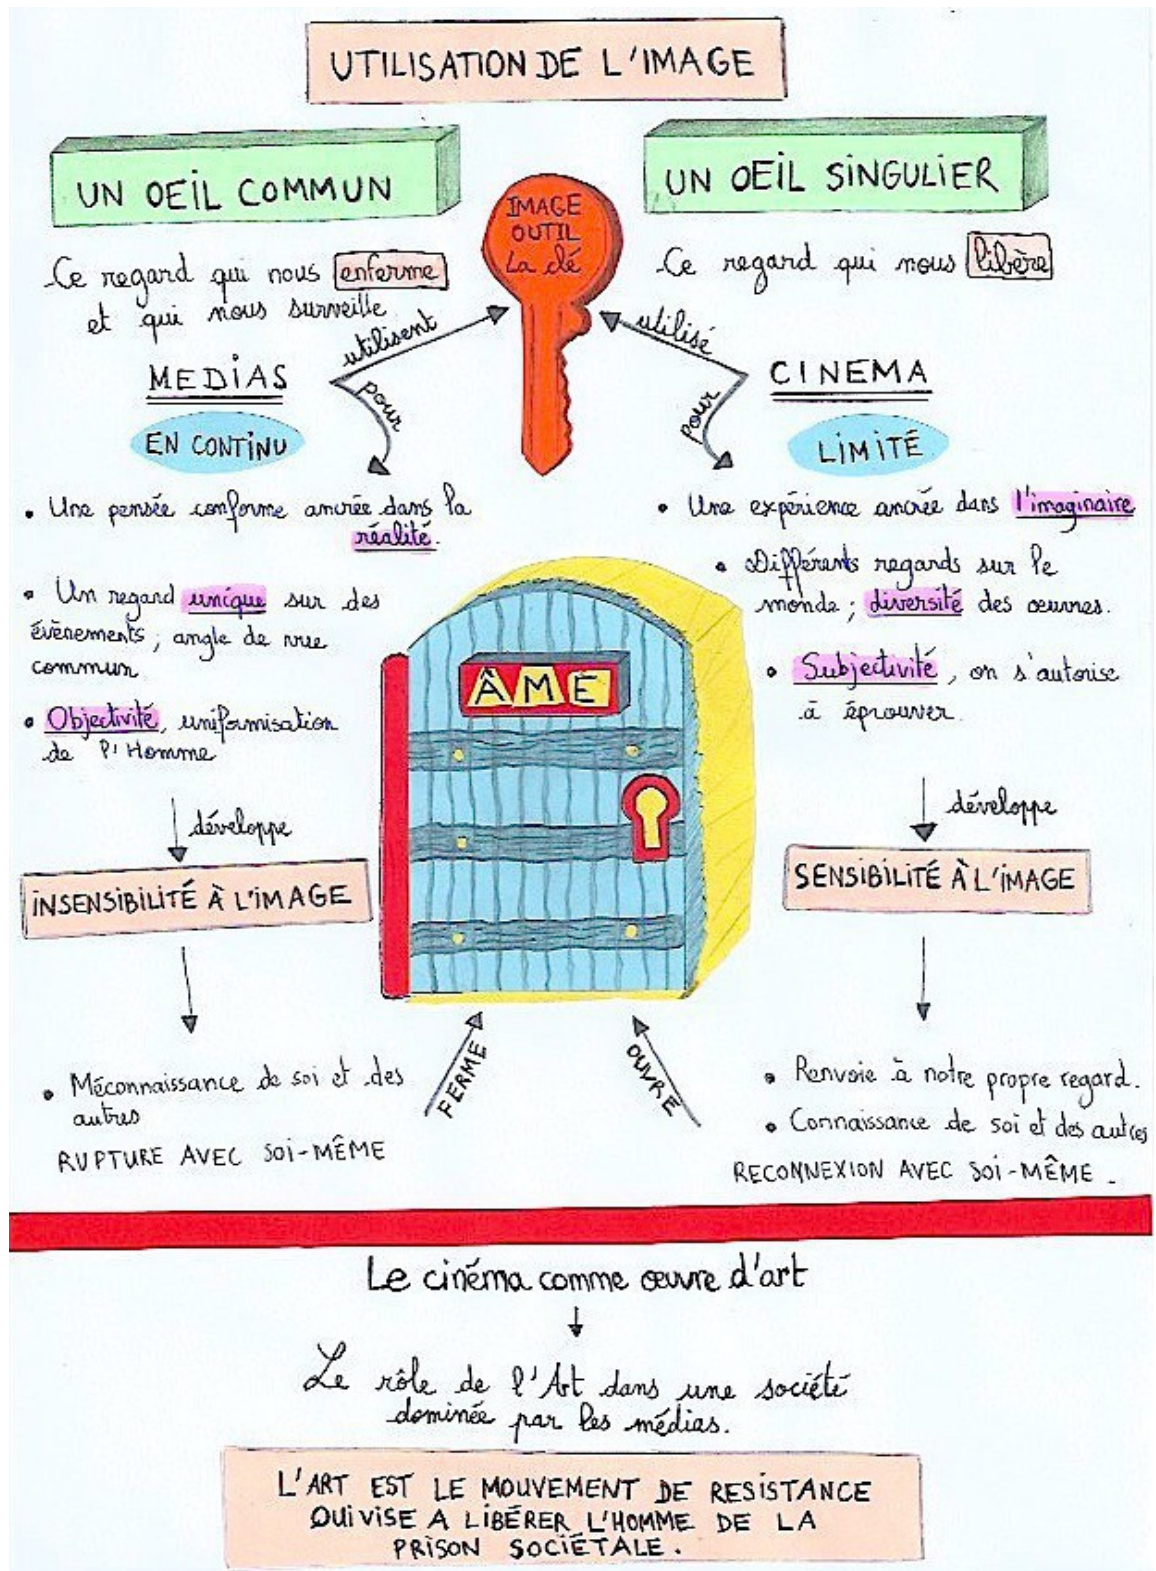 UTILISATION DE L'IMAGE
UN OEIL COMMUN
Ce regard qui nous enferme
et qui nous surveille
IMAGE
OUTIL
La clé
UN OEIL SINGULIER
Ce regard qui nous libère
utilisent
pour
MEDIAS
EN CONTINU
• Une pensée conforme ancrée dans la
réalité.
• Un regard unique sur des
évènements ; angle de vue
commun
• Objectivité, uniformisation
de l'Homme
développe
INSENSIBILITÉ À L'IMAGE
• Méconnaissance de soi et des
autres
RUPTURE AVEC SOI-MÊME
utilisé
pour
CINEMA
LIMITÉ
• Une expérience ancrée dans l'imaginaire
• Différents regards sur le
monde ; diversité des œuvres.
• Subjectivité, on s'autorise
à éprouver.
développe
SENSIBILITÉ À L'IMAGE
• Renvoie à notre propre regard.
• Connaissance de soi et des autres
RECONNEXION AVEC SOI-MÊME.
ÂME
FERME
OUVRE
Le cinéma comme œuvre d'art
Le rôle de l'Art dans une société
dominée par les médias.
L'ART EST LE MOUVEMENT DE RESISTANCE
QUI VISE A LIBÉRER L'HOMME DE LA
PRISON SOCIÉTALE.